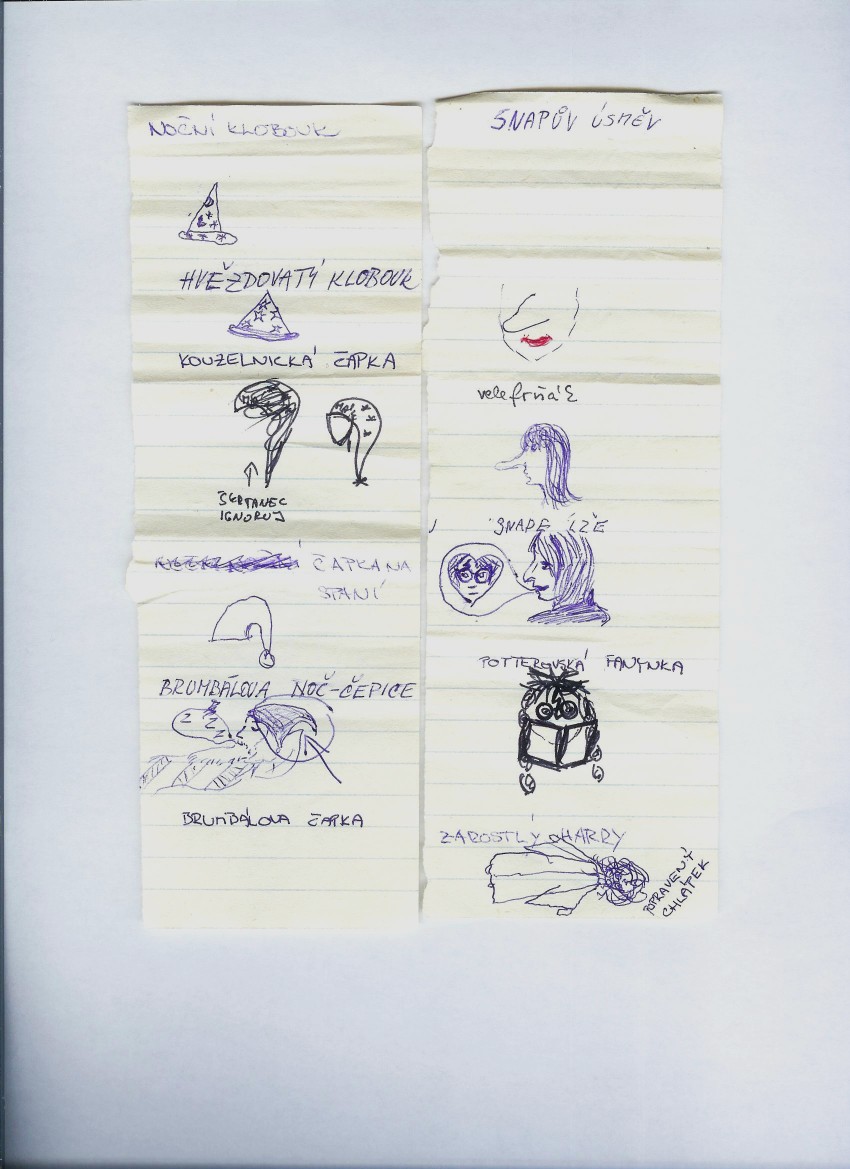 NOČNÍ KLOBOUK
HVĚŽDOVATÝ KLOBOUK
KOUZELNICKÁ ČAPKA
ŠERTANEC
IGNORUJ
ČAPKA NA
SPANÍ
BRUMBÁLOVA NOČ-ČEPICE
Z
Z
Z
BRUMBÁLOVA ČAPKA
SNAPŮV ÚSMĚV
velefrňák
SNAPE LŽE
POTTEROVSKÁ FANYNKA
ZAROSTLÝ HARRY
POPRAVENÝ
CHLÁPEK